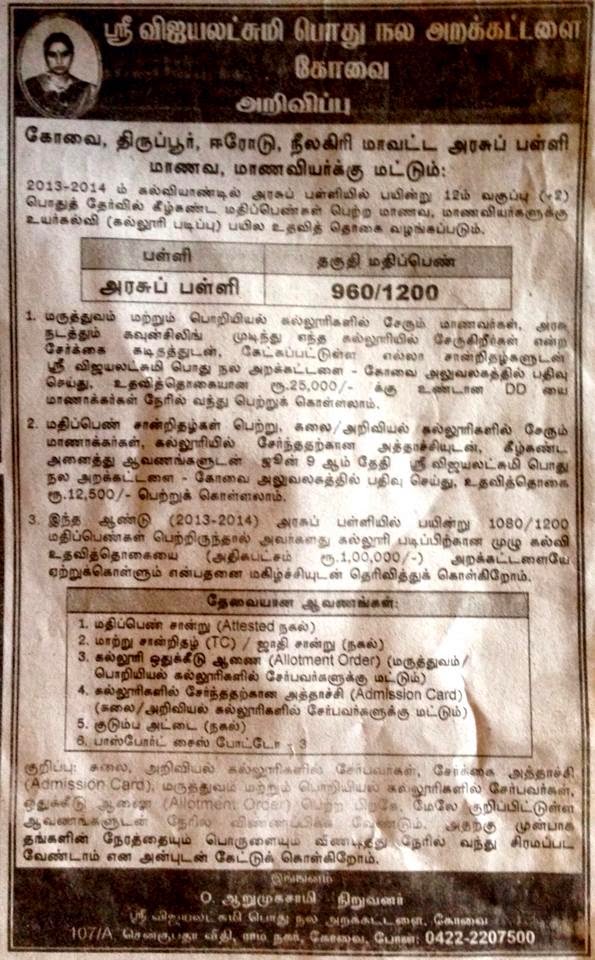 ஸ்ரீ விஜயலட்சுமி பொது நல அறக்கட்டளை
கோவை
அறிவிப்பு
கோவை, திருப்பூர், ஈரோடு, நீலகிரி மாவட்ட அரசுப் பள்ளி
மாணவ, மாணவியர்க்கு மட்டும்:
2013-2014 ம் கல்வியாண்டில் அரசுப் பள்ளியில் பயின்று 12ம் வகுப்பு (+2)
பொதுத் தேர்வில் கீழ்கண்ட மதிப்பெண்கள் பெற்ற மாணவ, மாணவியர்களுக்கு
உயர்கல்வி (கல்லூரி படிப்பு) பயில உதவித் தொகை வழங்கப்படும்.
பள்ளி தகுதி மதிப்பெண்
அரசுப் பள்ளி 960/1200
1. மருத்துவம் மற்றும் பொறியியல் கல்லூரிகளில் சேரும் மாணவர்கள், அரசு
நடத்தும் கவுன்சிலிங் முடிந்து எந்த கல்லூரியில் சேருகிறீர்கள் என்ற
சேர்க்கை கடிதத்துடன், கேட்கப்பட்டுள்ள எல்லா சான்றிதழ்களுடன்
ஸ்ரீ விஜயலட்சுமி பொது நல அறக்கட்டளை - கோவை அலுவலகத்தில் பதிவு
செய்து, உதவித்தொகையான ரூ.25,000/- க்கு உண்டான DD யை
மாணாக்கர்கள் நேரில் வந்து பெற்றுக் கொள்ளலாம்.
2. மதிப்பெண் சான்றிதழ்கள் பெற்று, கலை/அறிவியல் கல்லூரிகளில் சேரும்
மாணாக்கர்கள், கல்லூரியில் சேர்ந்ததற்கான அத்தாச்சியுடன், கீழ்கண்ட
அனைத்து ஆவணங்களுடன் ஜூன் 9 ஆம் தேதி ஸ்ரீ விஜயலட்சுமி பொது
நல அறக்கட்டளை - கோவை அலுவலகத்தில் பதிவு செய்து, உதவித்தொகை
ரூ.12,500/- பெற்றுக் கொள்ளலாம்.
3. இந்த ஆண்டு (2013-2014) அரசுப் பள்ளியில் பயின்று 1080/1200
மதிப்பெண்கள் பெற்றிருந்தால் அவர்களது கல்லூரி படிப்பிற்கான முழு கல்வி
உதவித்தொகையை (அதிகபட்சம் ரூ.1,00,000/-) அறக்கட்டளையே
ஏற்றுக்கொள்ளும் என்பதனை மகிழ்ச்சியுடன் தெரிவித்துக் கொள்கிறோம்.
தேவையான ஆவணங்கள்:
1. மதிப்பெண் சான்று (Attested நகல்)
2. மாற்று சான்றிதழ் (TC) / ஜாதி சான்று (நகல்)
3. கல்லூரி ஒதுக்கீடு ஆணை (Allotment Order) (மருத்துவம்/
பொறியியல் கல்லூரிகளில் சேர்பவர்களுக்கு மட்டும்)
4. கல்லூரிகளில் சேர்ந்ததற்கான அத்தாச்சி (Admission Card)
(கலை/அறிவியல் கல்லூரிகளில் சேர்பவர்களுக்கு மட்டும்)
5. குடும்ப அட்டை (நகல்)
6. பாஸ்போர்ட் சைஸ் போட்டோ 3
குறிப்பு: கலை, அறிவியல் கல்லூரிகளில் சேர்பவர்கள், சேர்க்கை அத்தாச்சி
(Admission Card), மருத்துவம் மற்றும் பொறியியல் கல்லூரிகளில் சேர்பவர்கள்,
ஒதுக்கீடு ஆணை (Allotment Order) பெற்ற பிறகே, மேலே குறிப்பிட்டுள்ள
ஆவணங்களுடன் நேரில் விண்ணப்பிக்க வேண்டும். அதற்கு முன்பாக
தங்களின் நேரத்தையும் பொருளையும் விணடித்து நேரில் வந்து சிரமப்பட
வேண்டாம் என அன்புடன் கேட்டுக் கொள்கிறோம்.
இங்ஙனம்
O. ஆறுமுகசாமி நிறுவனர்
ஸ்ரீ விஜயலட்சுமி பொது நல அறக்கட்டளை, கோவை
107/A, செங்குபதா வீதி, ராம் நகர், கோவை, போன்: 0422-2207500